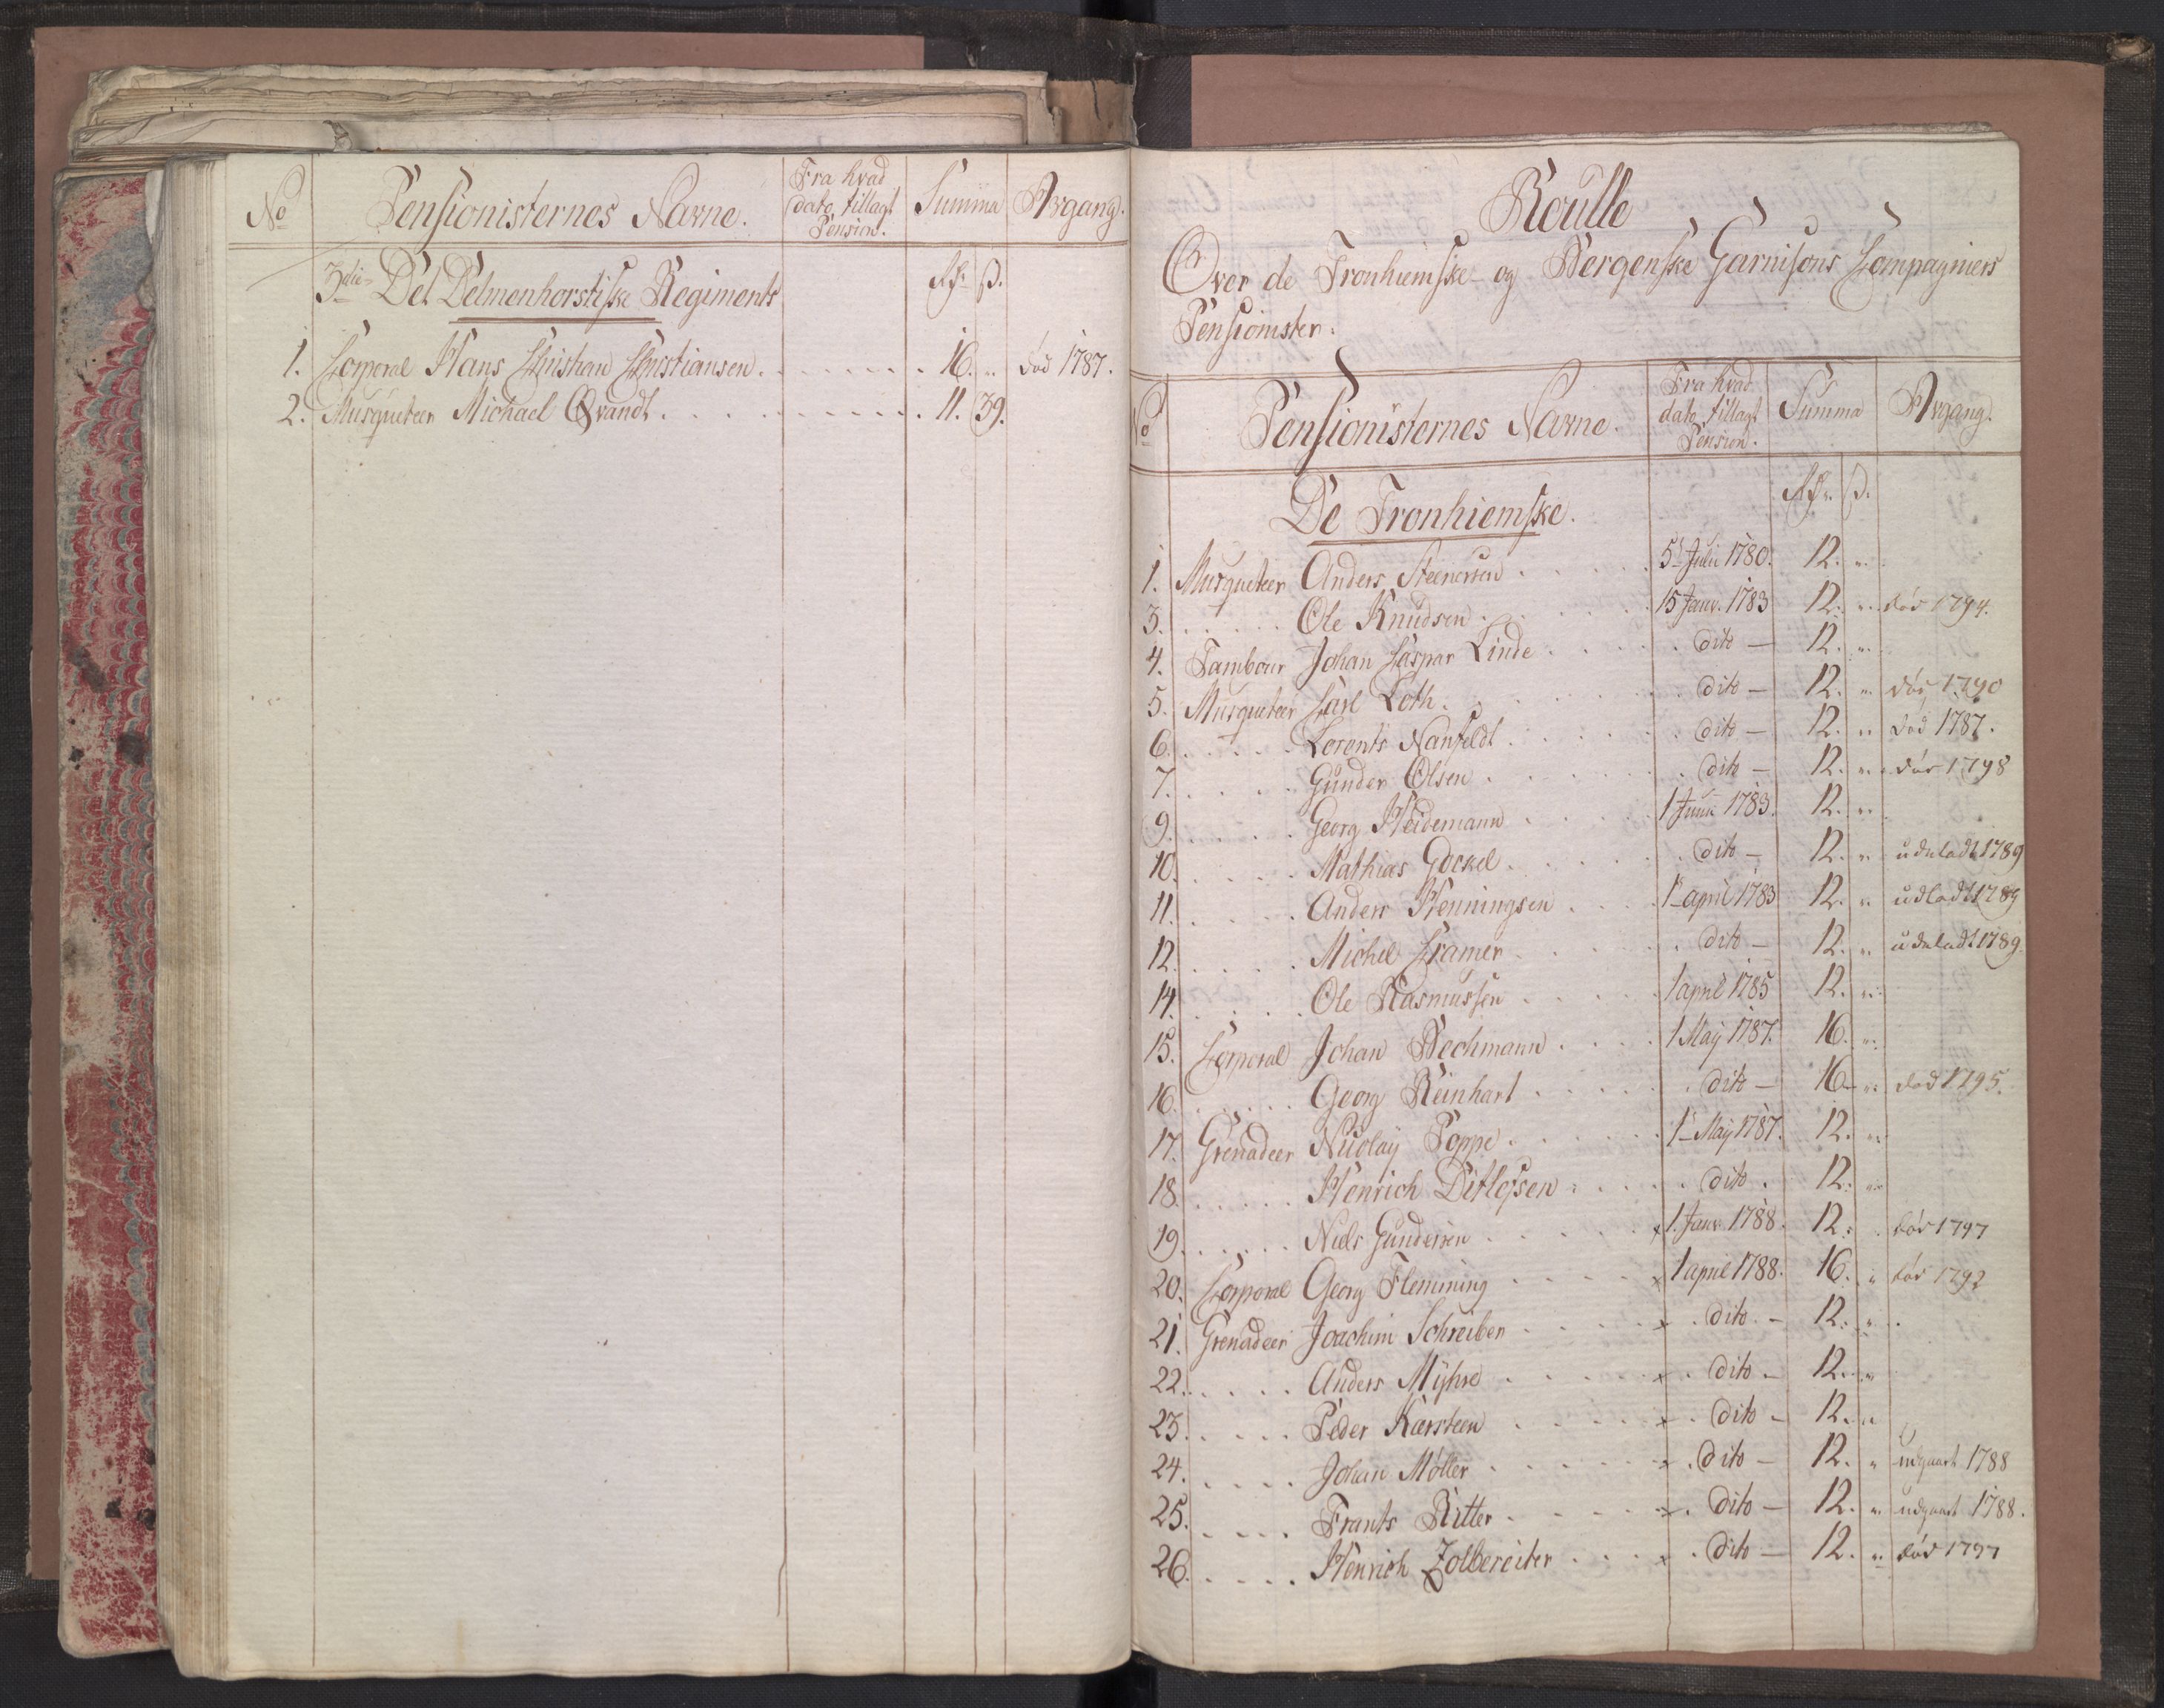 No Pensionisternes Navne. Fra hvad dato tillagt Pension. Summa Afgang.
3die Det Delmenhorstiske Regiment Rd. ß.
1. Corporal Hans Christian Christiansen. 16. " død 1787.
2. Musqueteer Michael Qvandt. 11. 39.
Roulle
Over de Tronhiemske og Bergenske Garnisons Compagniers
Pensionister.
No Pensionisternes Navne. Fra hvad dato tillagt Pension. Summa Afgang.
De Tronhiemske. Rd. ß.
1. Musqueteer Anders Steenersen 5 Julii 1780. 12. "
3. Ole Knudsen 15 Janv. 1783 12. " død 1794.
4. Tambour Johan Caspar Linde dito — 12. "
5. Musqueteer Carl Loth. dito — 12. " død 1790
6. Lorents Nanfeldt dito — 12. " død 1787.
7. Gunder Olsen dito — 12. " død 1798
9. Georg Heidemann 1 Junii 1783. 12. "
10. Mathias Gockel dito — 12. " udeladt 1789
11. Anders Henningsen 1 april 1783 12. " udladt 1789
12. Michel Cramer dito — 12. " udeladt 1789
14. Ole Rasmussen 1 april 1785 12. "
15. Corporal Johan Bechmann 1 Maij 1787. 16. "
16. Georg Reinhart dito — 16 " død 1795.
17. Grenadeer Nicolaij Poppe 1 Maij 1787. 12. "
18. Henrich Ditlefsen dito. 12. "
19. Niels Gundersen x 1. Janv. 1788. 12. død 1797
20. Corporal Georg Flemming x 1 april 1788. 16. " død 1792
21. Grenadeer Joachim Schreiber x dito. — 12. "
22. Anders Mÿhre x dito — 12. "
23. Peder Kærsteen x dito — 12. "
24. Johan Møller x dito — 12. " udgaart 1788
25. Frants Ritter x dito — 12. " udgaart 1788.
26. Henrich Zolbereiter x dito — 12. " død 1797